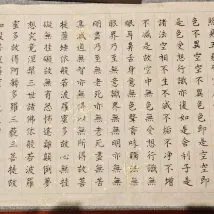 色不異空空不異色色即是空空即
是色受想行識亦復如是舍利子是
諸法空相不生不滅不垢不淨不增
不減是故空中無色無受想行識無
眼耳鼻舌身意無色聲香味觸法無
眼界乃至無意識界無無明亦無無
明盡乃至無老死亦無老死盡無苦
集滅道無智亦無得以無所得故菩
提薩埵依般若波羅蜜多故心無罣
礙無罣礙故無有恐怖遠離顛倒夢
想究竟涅槃三世諸佛依般若波羅
蜜多故得阿耨多羅三藐三菩提故